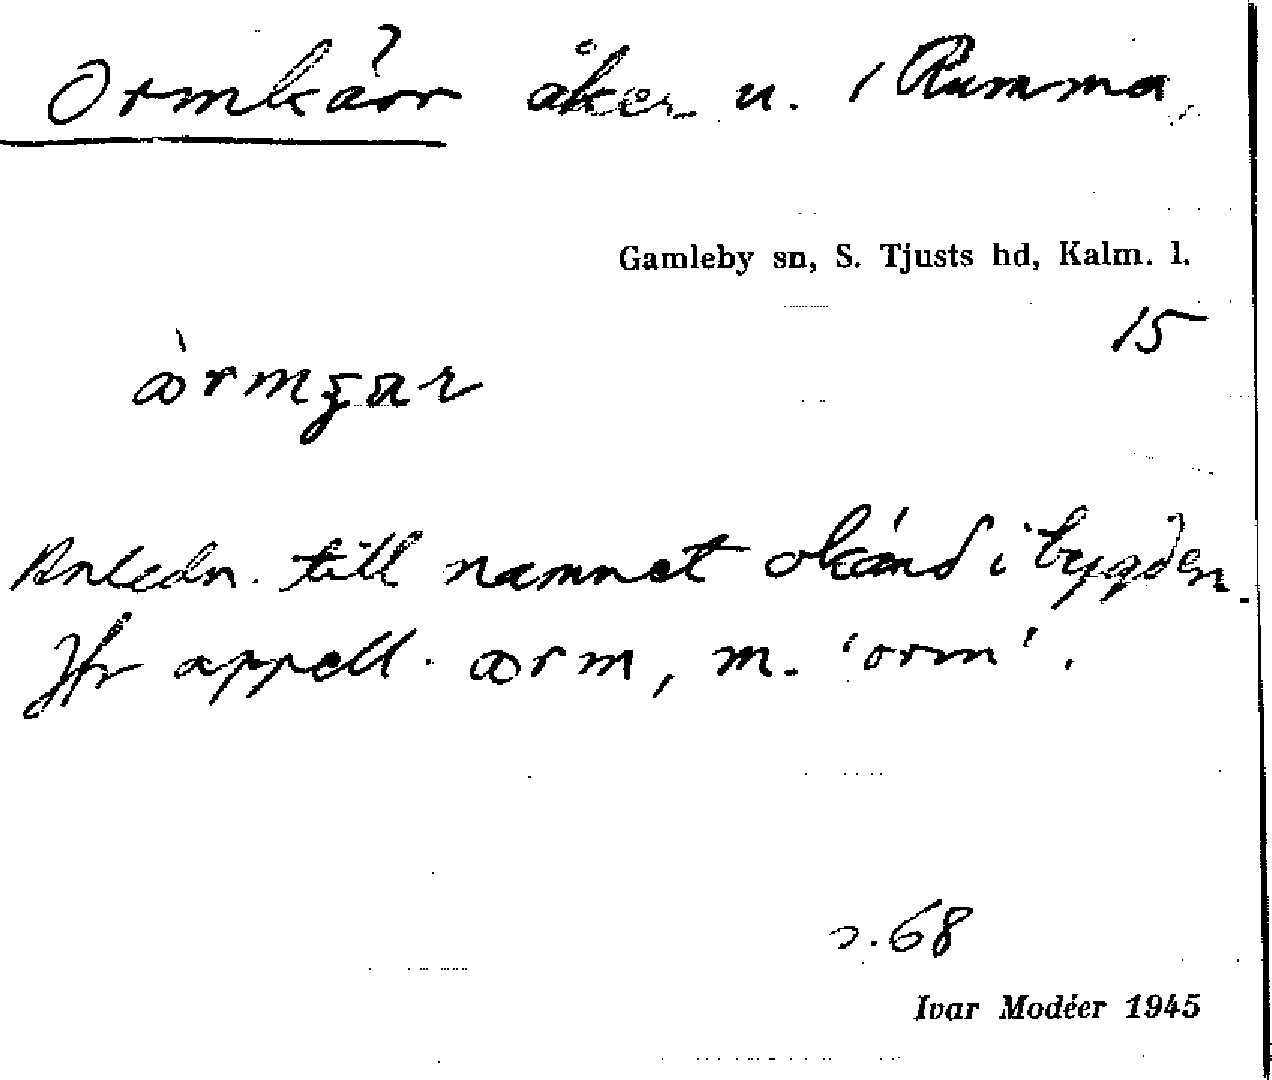 Ormkärr åker u. / Rumma
Gamleby sn, S. Tjusts hd, Kalm. l.
15
Anledn. till namnet okänd i bygden.
Jfr appell. ørm, m. 'orm'.
s. 68
Ivar Modéer 1945